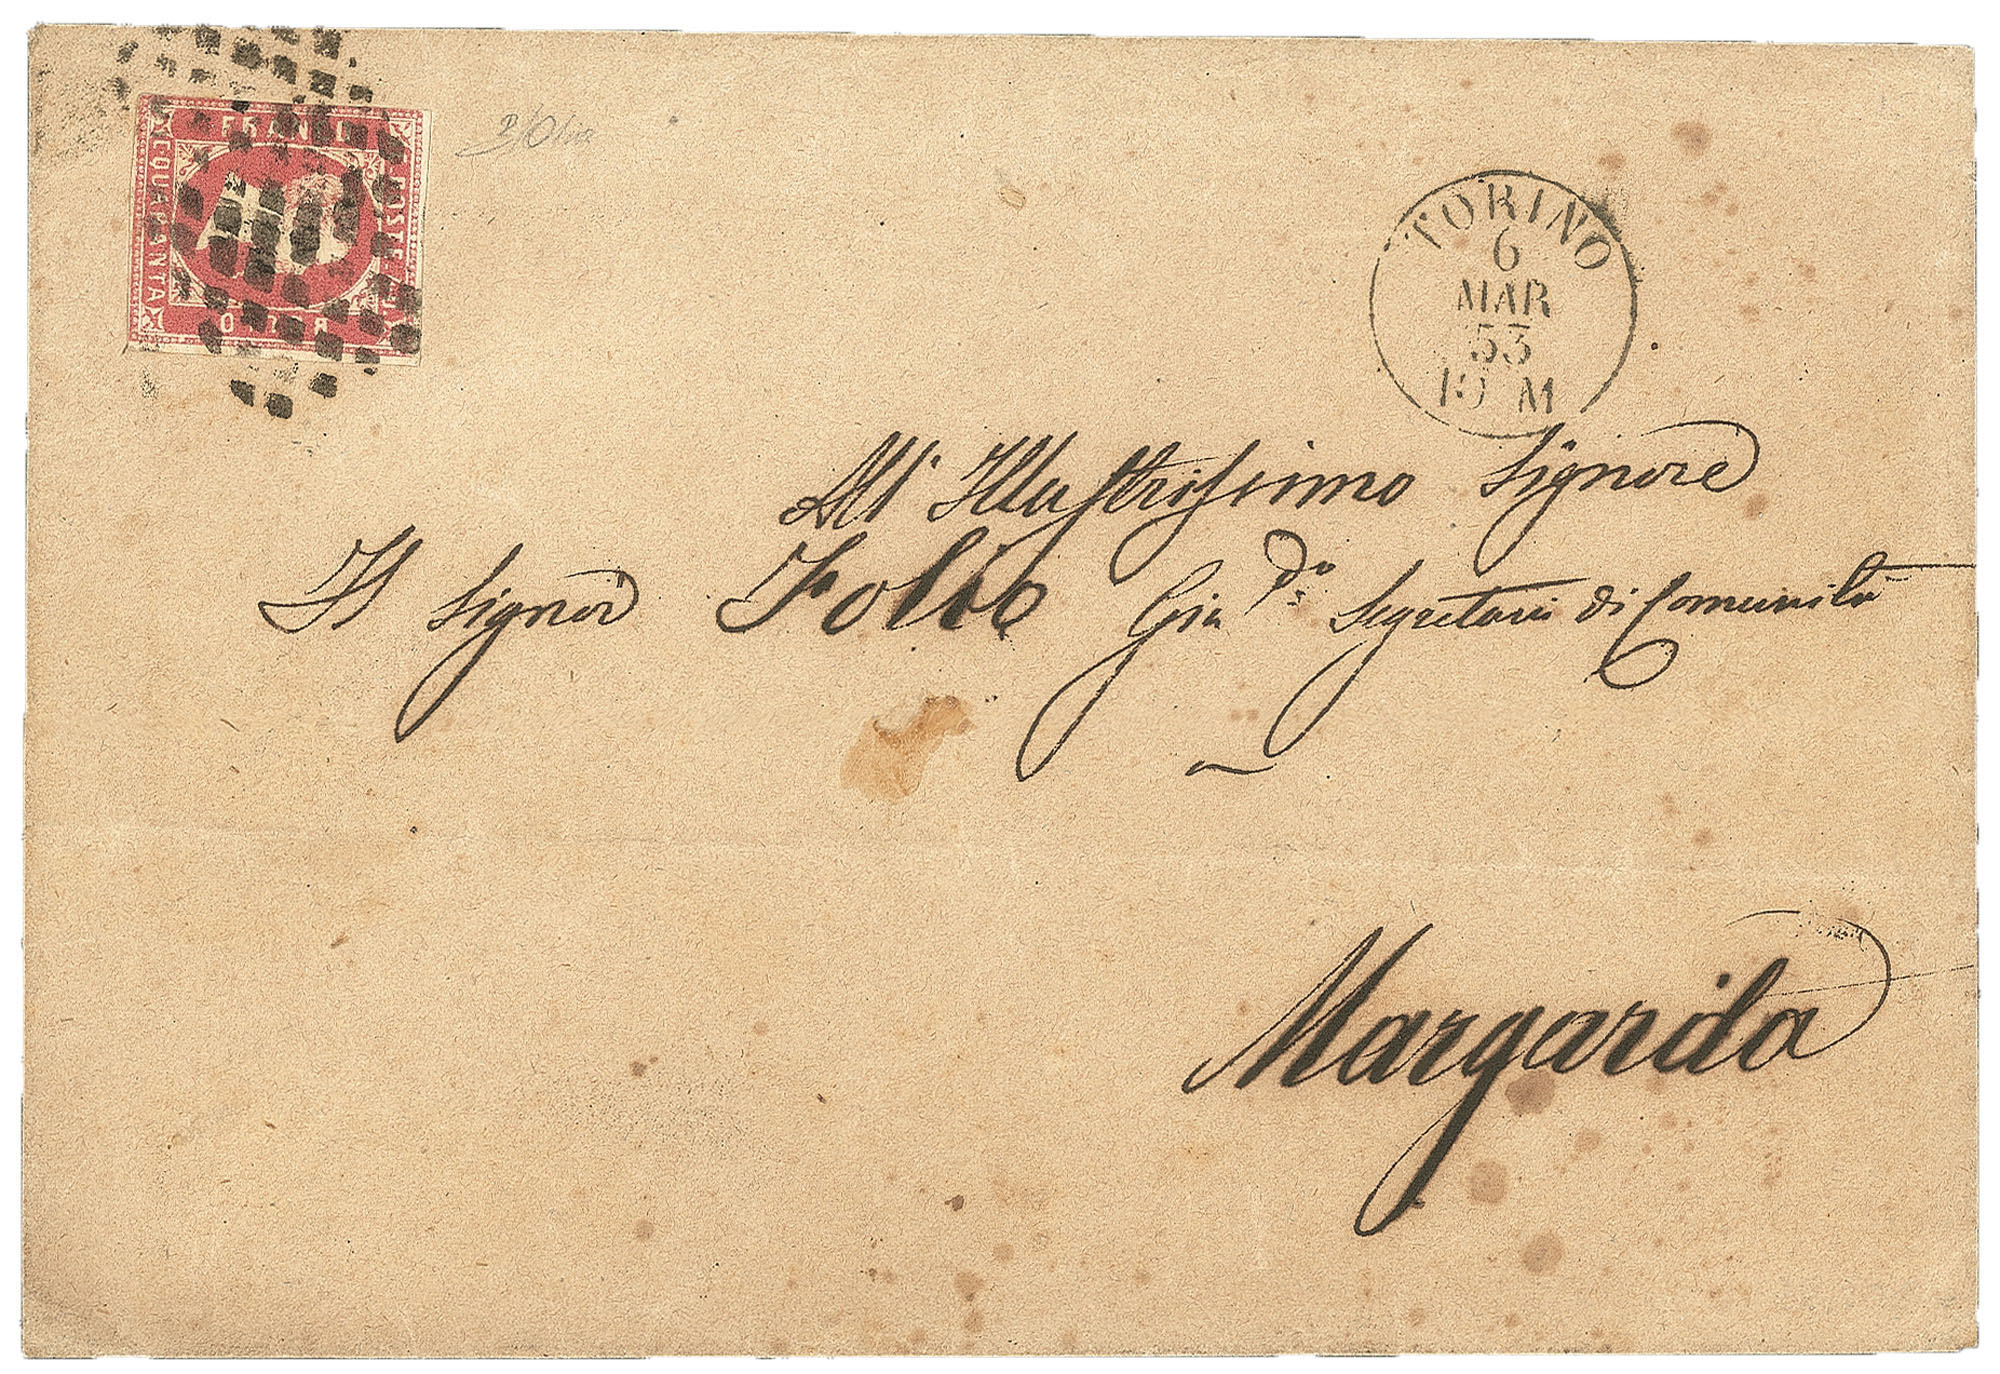 FRANCO
C. QUARANTA
POSTE
TORINO
6
MAR
53
10 M
All' Illustrissimo Signore
Il Signor Folio Gia D.º Segretario di Comunità
Margarita